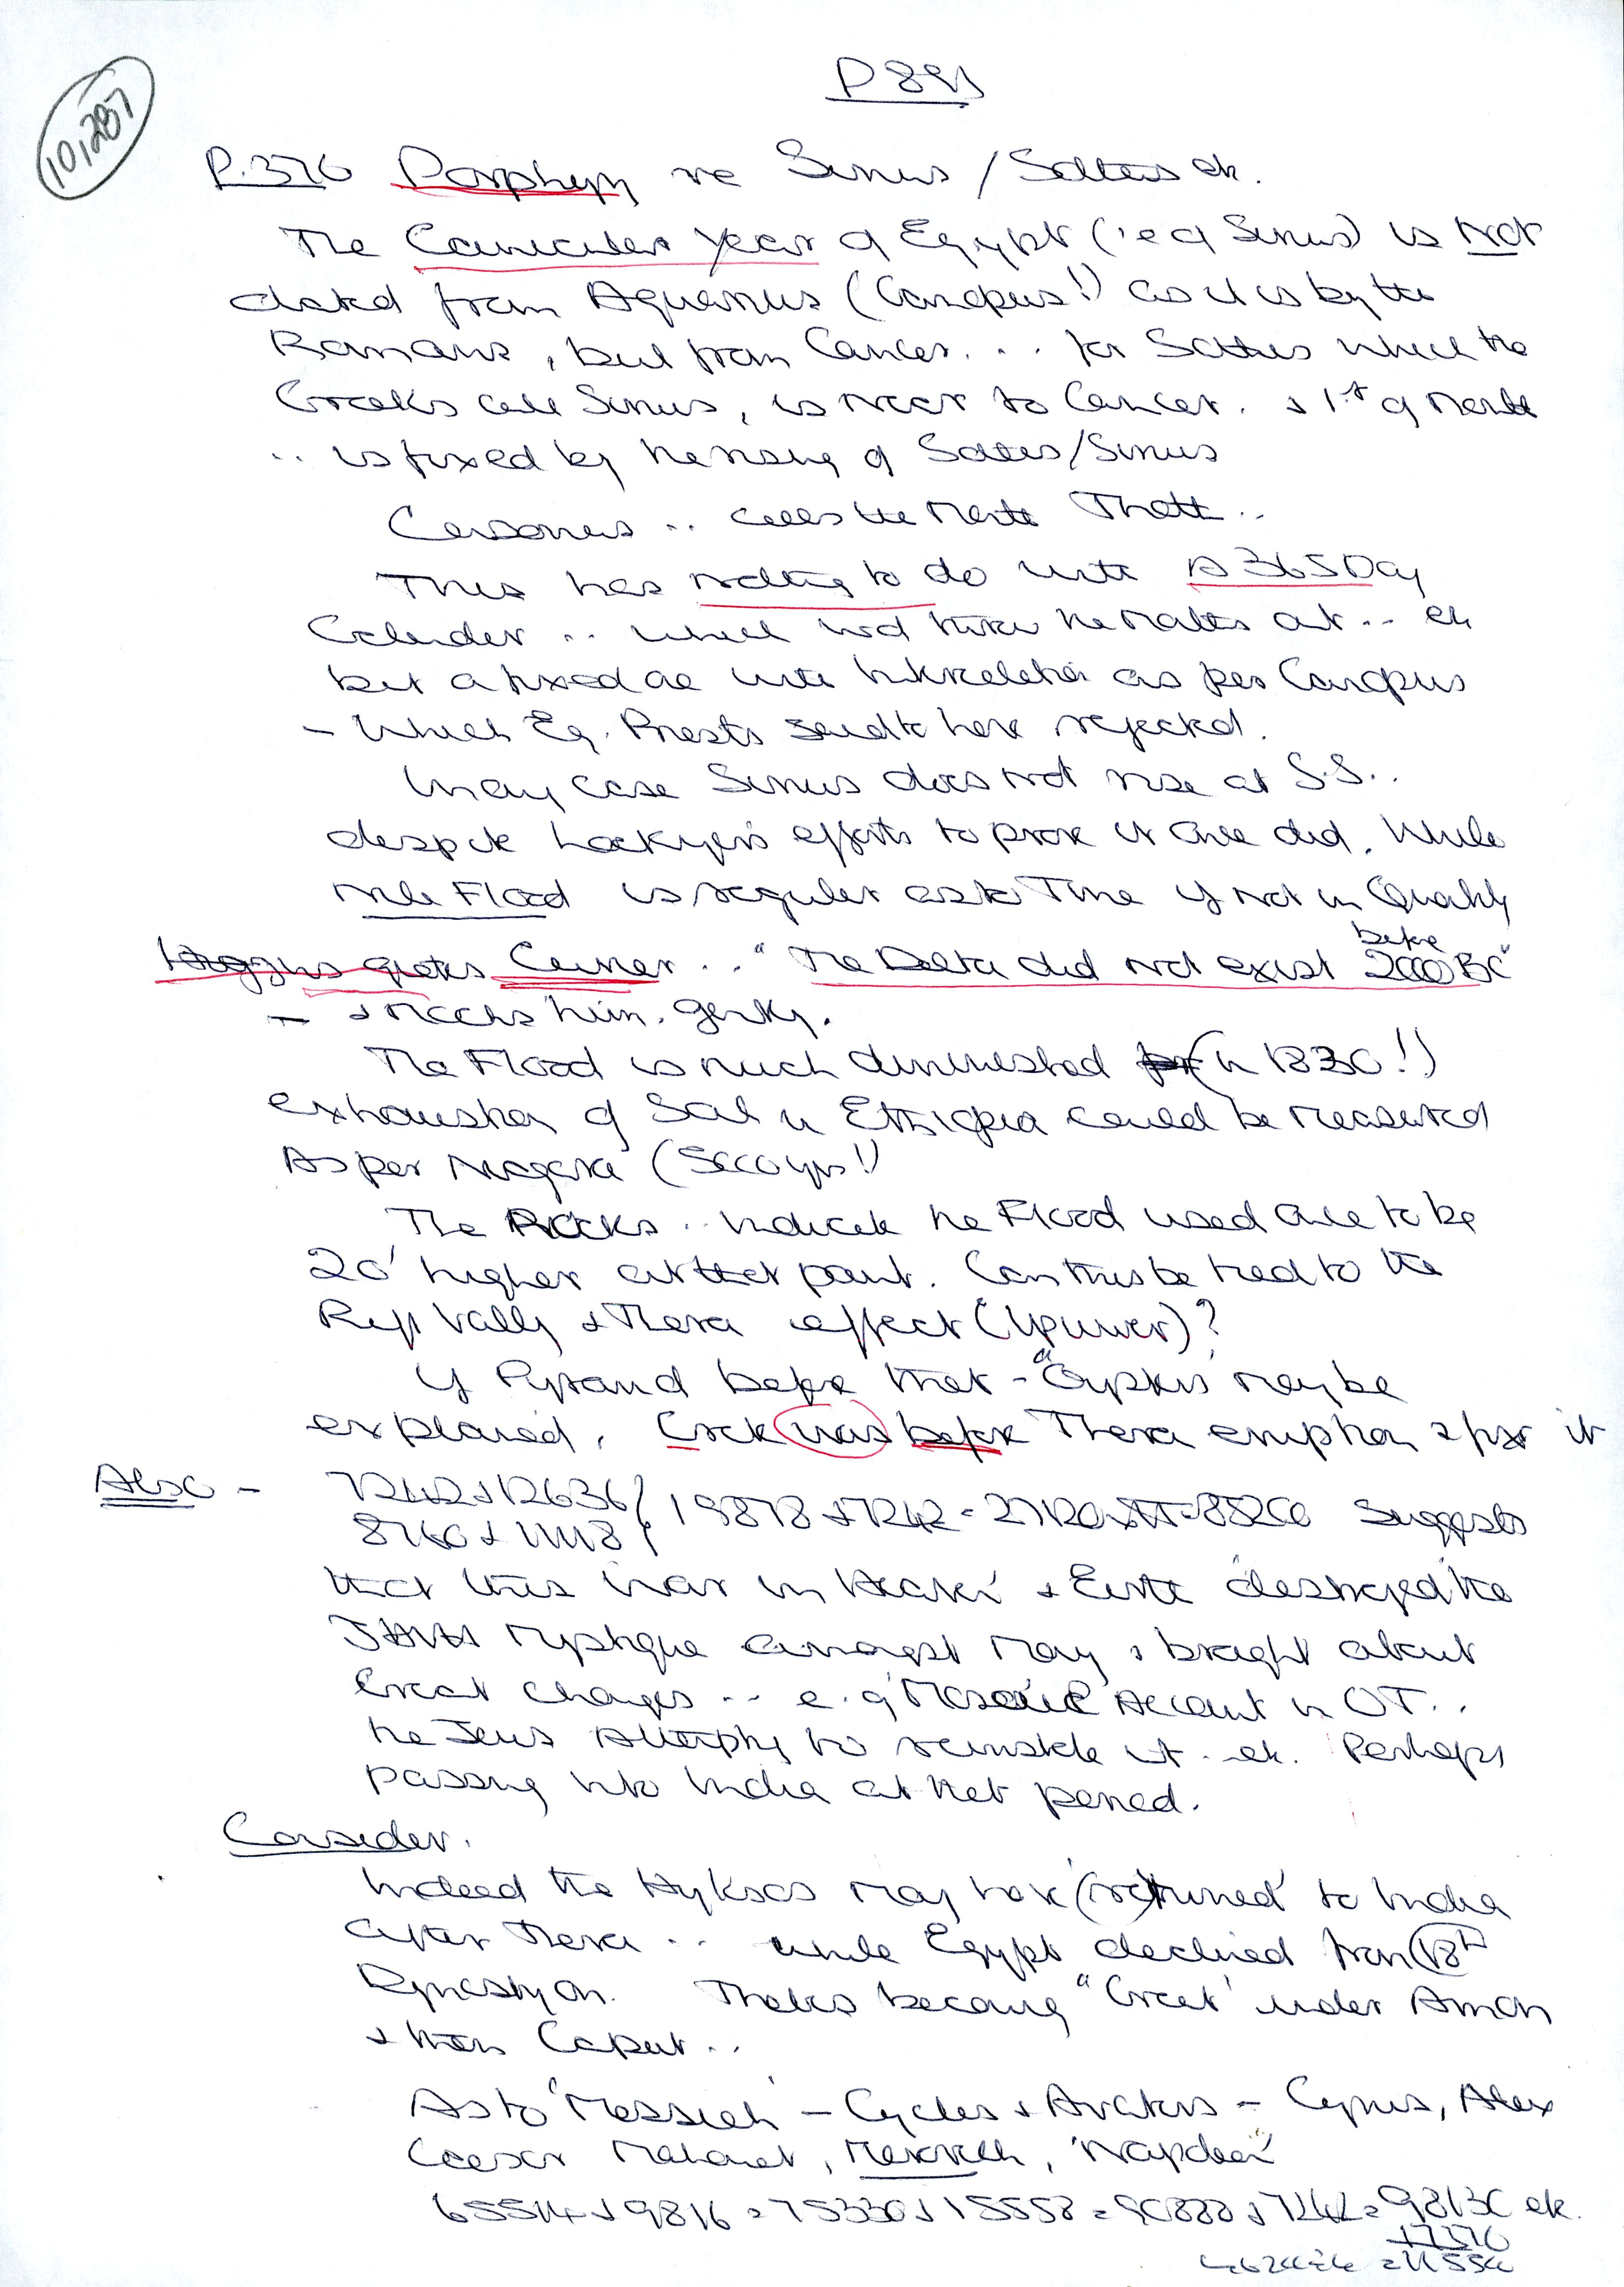 P 891
10,287
P.370 Porphyry re Sirius / Sothis etc.
The Canicular Year of Egypt (ie of Sirius) is Not
dated from Aquarius (Canopus!) as it is by the
Romans, but from Cancer... for Sothis which the
Greeks call Sirius, is near to Cancer. & 1st of Month
.. is fixed by the rising of Sothis/Sirius
.. calls the Month Thoth..
This has nothing to do with A 365 Day
Calender .. which wd throw the Maths out .. etc
but a fixed one with Interrelation as per Canopus
- Which Eg. Priests said to have rejected.
In any case Sirius does not rise at S.S..
despite Lockyer's efforts to prove it once did. While
Nile Flood is regular as to Time if not in Quality
Higgins quotes Cuvier .. "The Delta did not exist before 2000 BC"
- & mocks him. gently.
The Flood is much diminished (in 1830!)
exhaustion of Soil in Ethiopia could be measured
As per Niagara (Secoyrs!)
The Rocks .. indicate the Flood used once to be
20' higher at that point. Can this be tied to the
Rift Vally & Thera effect (Ipuwer)?
If Pyramid before that - may be
explained. was before Thera eruption & for it
Also - 7242 & 12636
8760 & 11118 } 19878 + 7242 = 27120 = 8820 Suggests
that this 'war in Heaven' & Earth destroyed the
Mystique amongst Many & brought about
Great changes .. e.g Account in OT..
the Jews Attempting to reinstate it - etc. Perhaps
passing into India at that period.
Consider.
Indeed the Hyksos may have (re)turned to India
after Thera .. while Egypt declined from 18th
Dynasty on. Thebes becoming "Great" under Amon
& then Caput..
As to 'Messiah' - Cycles & Avatars - Cyrus, Alex
Caesar Mahomet, 'Napoleon'
65514 + 9816 = 75330 + 15558 = 90888 + 7242 = 98130 etc.